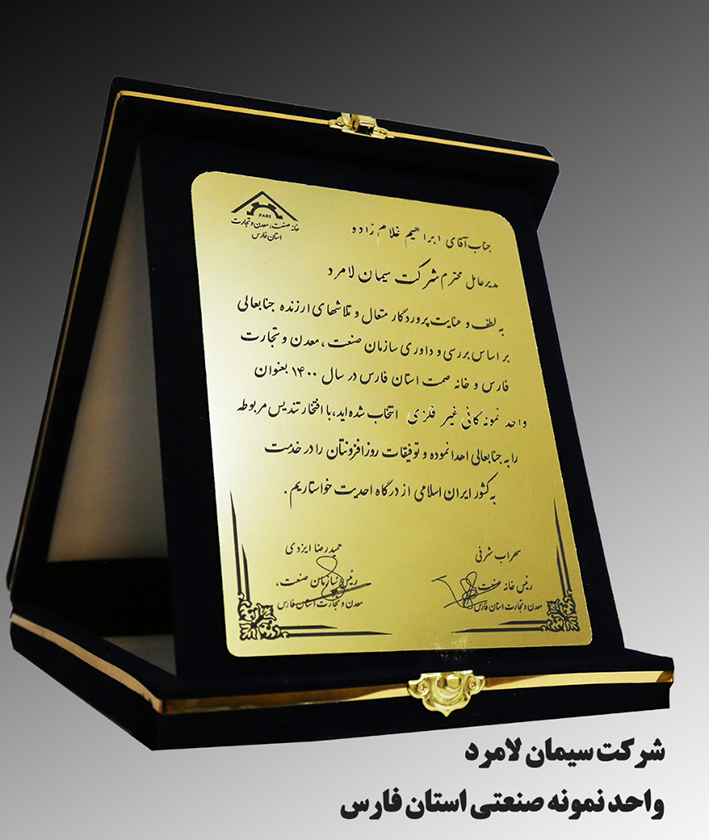 FARS
خانه صنعت، معدن و تجارت
استان فارس
جناب آقای ابراهیم غلام زاده
مدیرعامل محترم شرکت سیمان لامرد
به لطف و عنایت پروردگار متعال و تلاشهای ارزنده جنابعالی
بر اساس بررسی و داوری سازمان صنعت ، معدن و تجارت
فارس و خانه صمت استان فارس در سال ۱۴۰۰ بعنوان
واحد نمونه کانی غیر فلزی انتخاب شده اید، با افتخار تندیس مربوطه
را به جنابعالی اهدا نموده و توفیقات روزافزونتان را در خدمت
به کشور ایران اسلامی از درگاه احدیت خواستاریم .
سهراب شرفی
رئیس خانه صنعت
معدن و تجارت استان فارس
حمیدرضا ایزدی
رئیس سازمان صنعت،
معدن و تجارت استان فارس
شرکت سیمان لامرد
واحد نمونه صنعتی استان فارس